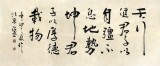 天行
健君子以
自彊不
息地勢
坤君
子以厚德
載物